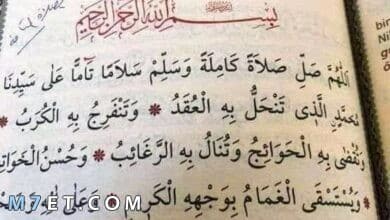 بِسْمِ اللهِ الرَّحْمٰنِ الرَّحِيمِ
اَللّٰهُمَّ صَلِّ صَلَاةً كَامِلَةً وَسَلِّمْ سَلَامًا تَآمًّا عَلَى سَيِّدِنَا
مُحَمَّدٍ الَّذِى تَنْحَلُّ بِهِ الْعُقَدُ * وَتَنْفَرِجُ بِهِ الْكُرَبُ *
وَتُقْضَى بِهِ الْحَوَائِجُ وَتُنَالُ بِهِ الرَّغَائِبُ * وَحُسْنُ الْخَوَاتِ
* وَيُسْتَسْقَى الْغَمَامُ بِوَجْهِهِ الْكَرِيمِ * وَعَلَى
bin
Ni
M7ET.COM